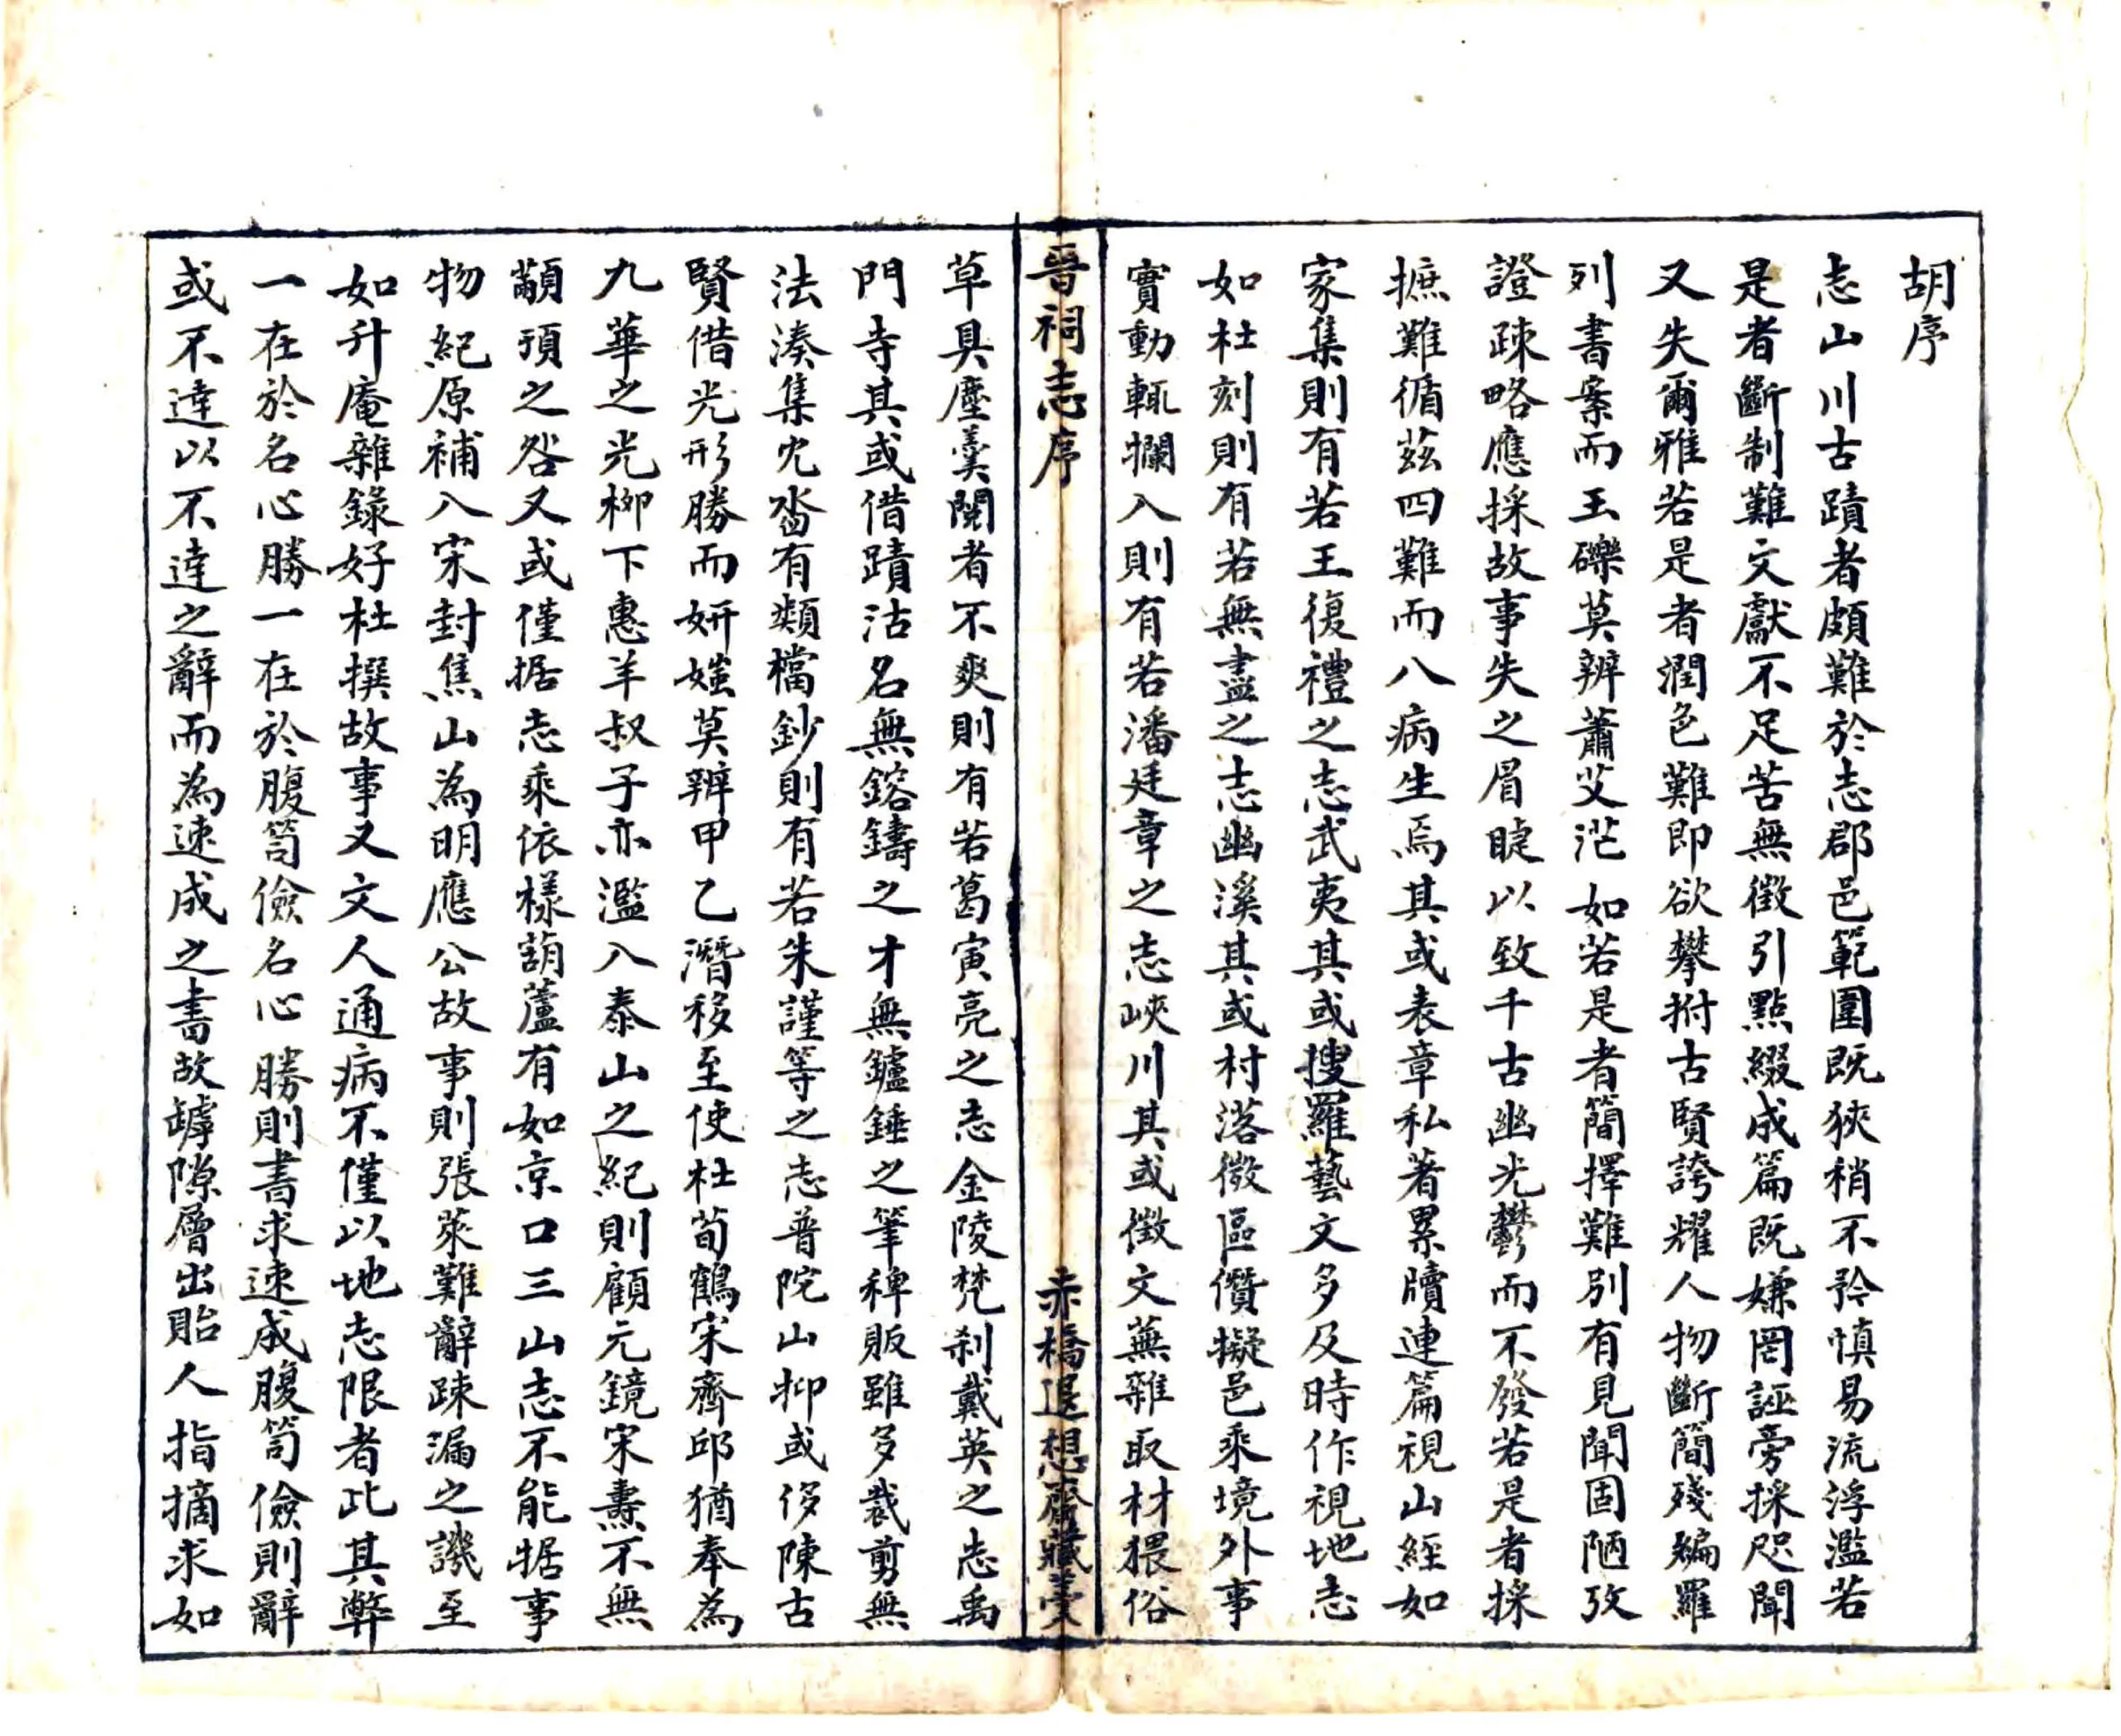 胡序
志山川古蹟者頗難於志郡邑範圍既狹稍不矜慎易流浮濫若
是者斷制難文獻不足苦無徵引點綴成篇既嫌罔誣旁採咫聞
又失爾雅若是者潤色難即欲攀拊古賢誇耀人物斷簡殘編羅
列書案而玉礫莫辨蕭艾茫如若是者簡擇難別有見聞固陋攷
證疎略應採故事失之眉睫以致千古幽光鬱而不發若是者採
摭難循茲四難而八病生焉其或表章私著累牘連篇視山經如
家集則有若王復禮之志武夷其或搜羅藝文多及時作視地志
如杜刻則有若無盡之志幽溪其或村落微區僭擬邑乘境外事
實動輒攔入則有若潘廷章之志峽川其或徵文蕪雜取材猥俗
晉祠志序
赤橋退想齋藏
草具塵羹閱者不爽則有若葛寅亮之志金陵梵刹戴英之志禹
門寺其或借蹟沽名無鎔鑄之才無鑪錘之筆稗販雖多裁剪無
法湊集冗沓有類檔鈔則有若朱謹等之志普陀山抑或侈陳古
賢借光形勝而妍媸莫辨甲乙潛移至使杜荀鶴宋齊邱猶奉為
九華之光柳下惠羊叔子亦濫入泰山之紀則顧元鏡宋燾不無
顢頇之咎又或僅据志乘依樣葫蘆有如京口三山志不能据事
物紀原補入宋封焦山為明應公故事則張萊難辭疎漏之譏至
如升庵雜錄好杜撰故事又文人通病不僅以地志限者此其弊
一在於名心勝一在於腹笥儉名心勝則書求速成腹笥儉則辭
或不達以不達之辭而為速成之書故罅隙層出貽人指摘求如